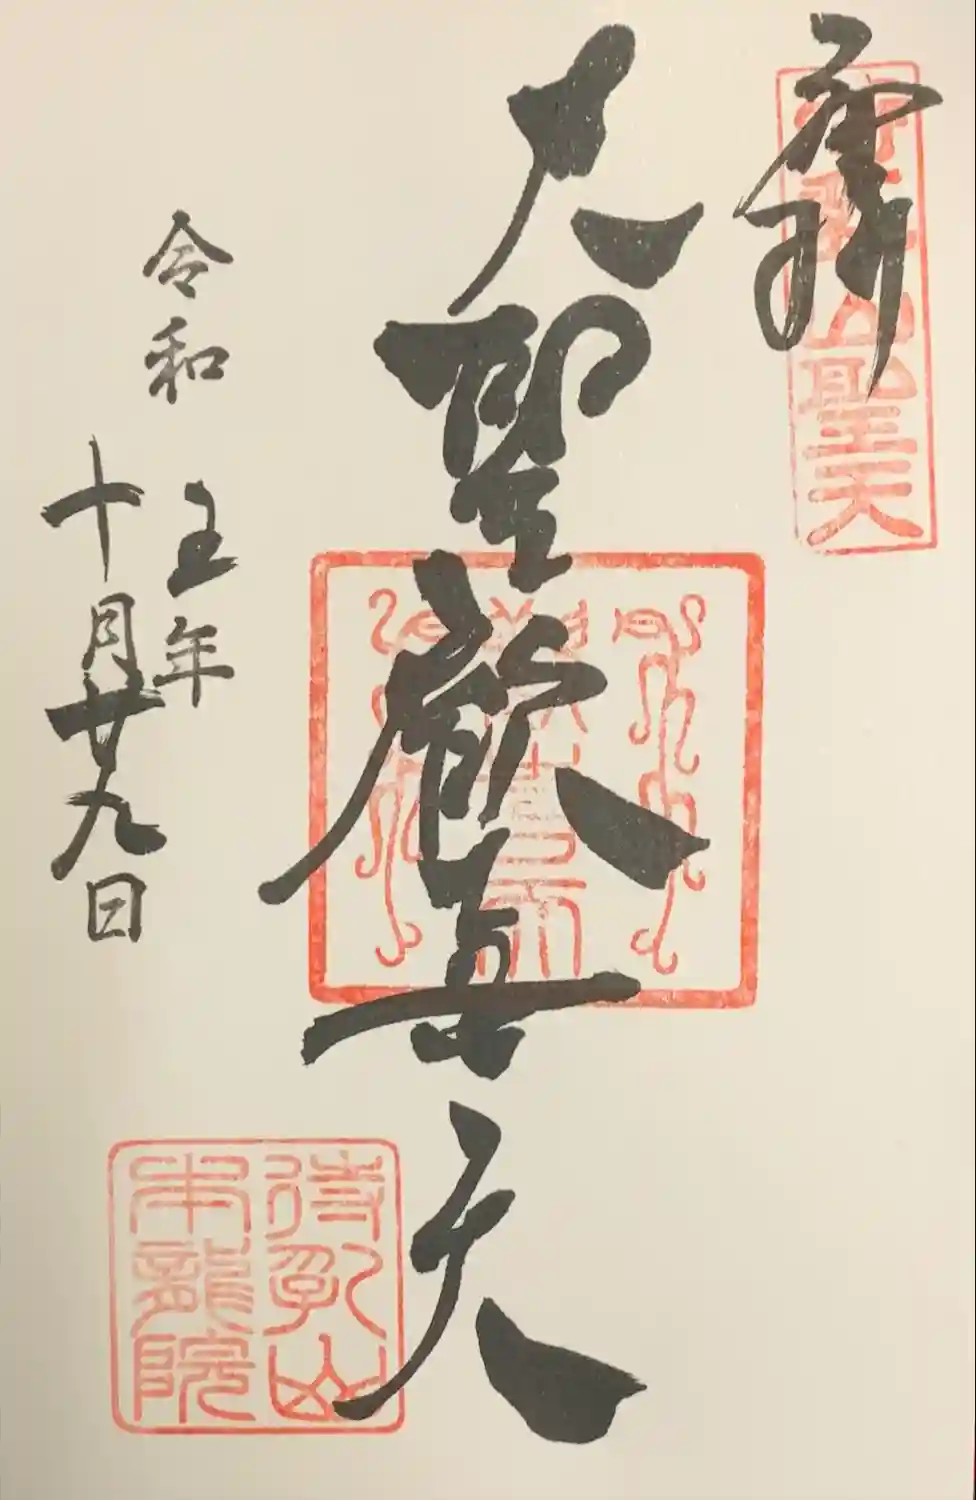 奉拝
待乳山聖天
大聖歓喜天
令和五年
十月廿九日
待乳山
本龍院